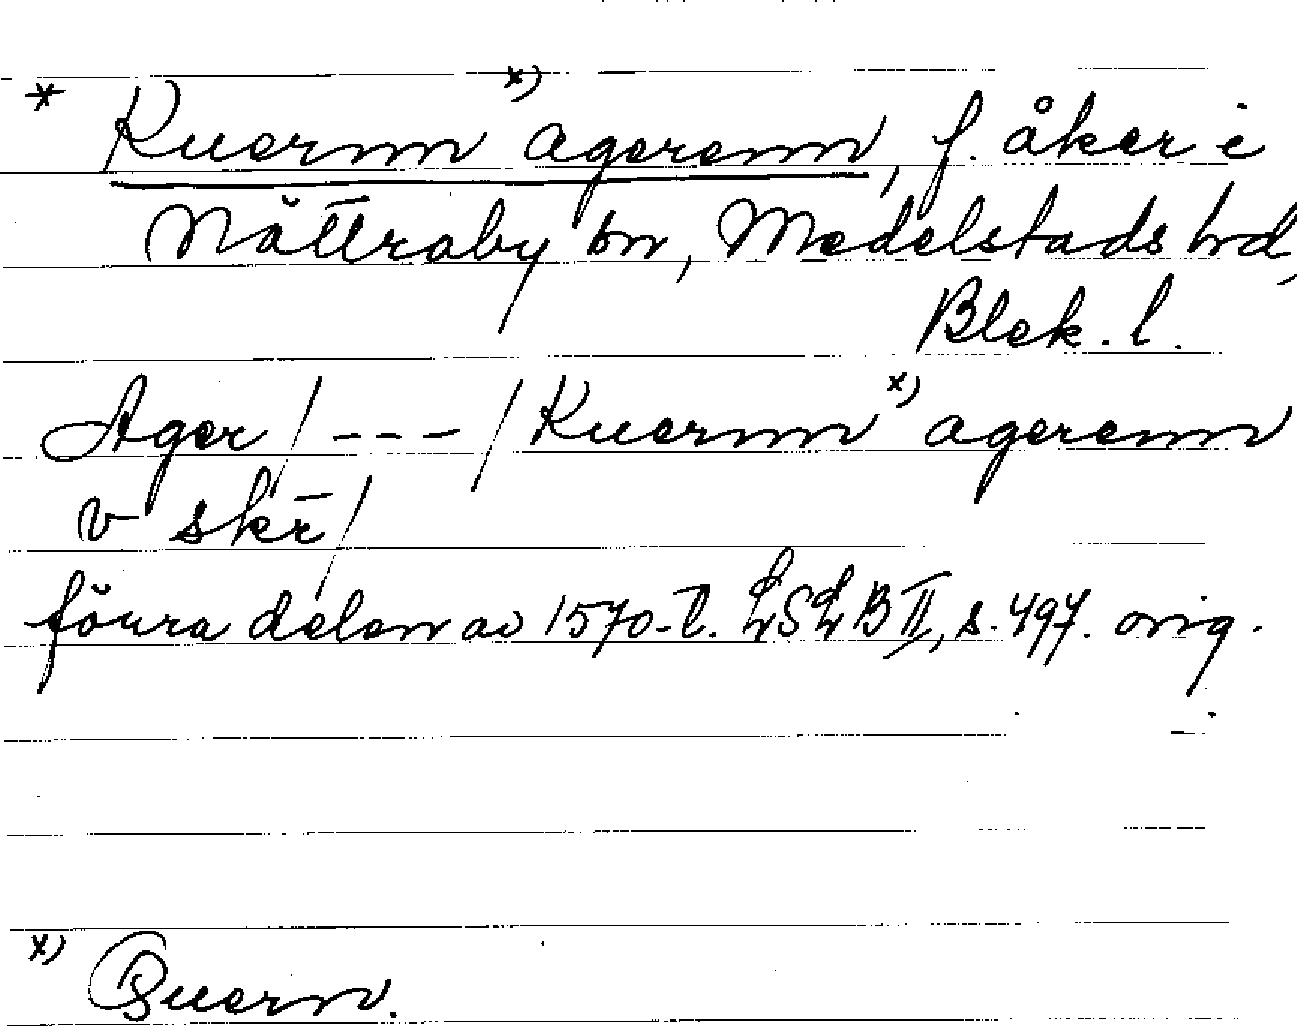 * Kuernn x) agerenn, f. åker i
Nättraby sn, Medelstads hd,
Blek. l.
Ager / - - - / Kuernn x) agerenn
v skr̄ /
förra delen av 1570-t. LSLB II, s. 497. orig.
x) Quern.